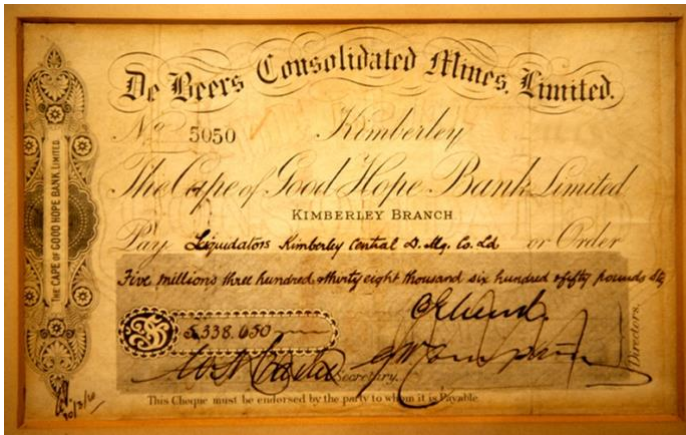 De Beers Consolidated Mines, Limited.
No 5050 Kimberley
The Cape of Good Hope Bank Limited
KIMBERLEY BRANCH
Pay Liquidators Kimberley Central D. Mg. Co. Ld or Order
Five millions three hundred & thirty eight thousand six hundred & fifty pounds Stg
5,338,650
Secretary.
Directors.
This Cheque must be endorsed by the party to whom it is Payable
THE CAPE OF GOOD HOPE BANK, LIMITED